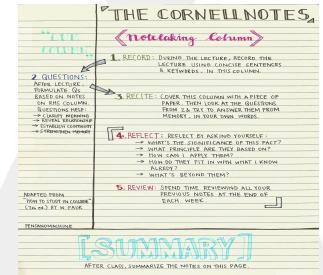 THE CORNELL NOTES
"CUE
COLUMN"
《Notetaking Column》
1. RECORD: DURING THE LECTURE, RECORD THE
LECTURE USING CONCISE SENTENCES
& KEYWORDS. IN THIS COLUMN.
2. QUESTIONS:
AFTER LECTURE,
FORMULATE QS
BASED ON NOTES
ON RHS COLUMN.
QUESTIONS HELP:
→ CLARIFY MEANING
→ REVEAL RELATIONSHIP
→ ESTABLISH CONTINUITY
→ STRENGTHEN MEMORY
3. RECITE: COVER THIS COLUMN WITH A PIECE OF
PAPER. THEN LOOK AT THE QUESTIONS
FROM 2 & TRY TO ANSWER THEM FROM
MEMORY. IN YOUR OWN WORDS.
4. REFLECT: REFLECT BY ASKING YOURSELF:
→ WHAT'S THE SIGNIFICANCE OF THIS FACT?
→ WHAT PRINCIPLE ARE THEY BASED ON?
→ HOW CAN I APPLY THEM?
→ HOW DO THEY FIT IN WITH WHAT I KNOW
ALREADY?
→ WHAT'S BEYOND THEM?
5. REVIEW: SPEND TIME REVIEWING ALL YOUR
PREVIOUS NOTES AT THE END OF
EACH WEEK.
ADAPTED FROM
"HOW TO STUDY IN COLLEGE"
(7th ed.) BY W. PAUK
PENSANDMACHINE
[SUMMARY]
AFTER CLASS, SUMMARIZE THE NOTES ON THIS PAGE.